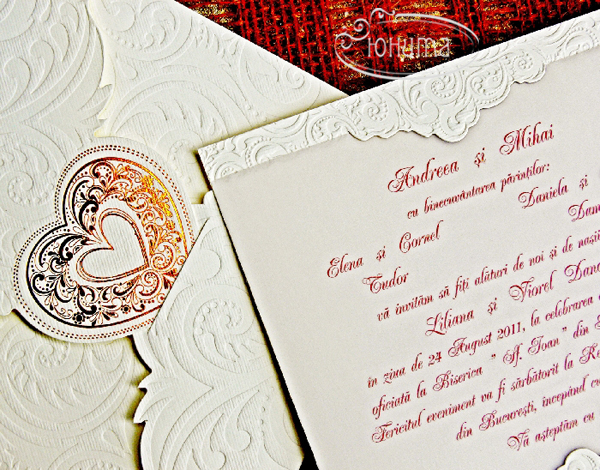 Юнита
Andreea şi Mihai
cu binecuvântarea părinţilor:
Daniela şi
Elena şi Cornel
Tudor
vă invităm să fiţi alături de noi şi de
Liliana şi Viorel
în ziua de 24 August 2011, la celebrarea
oficiată la Biserica " Sf. Ioan " din
Fericitul eveniment va fi sărbătorit la
din Bucureşti, începând
Vă aşteptăm cu